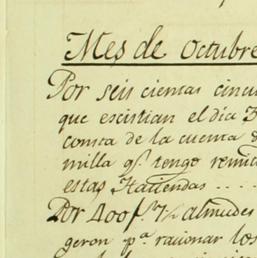 Mes de Octubre
Por seis cientas cincu
que escistian el dia 3
consta de la cuenta
milla q.e tengo remiti
estas Haciendas ....
Por 400 f.s 7½ almudes
geron p.a racionar los